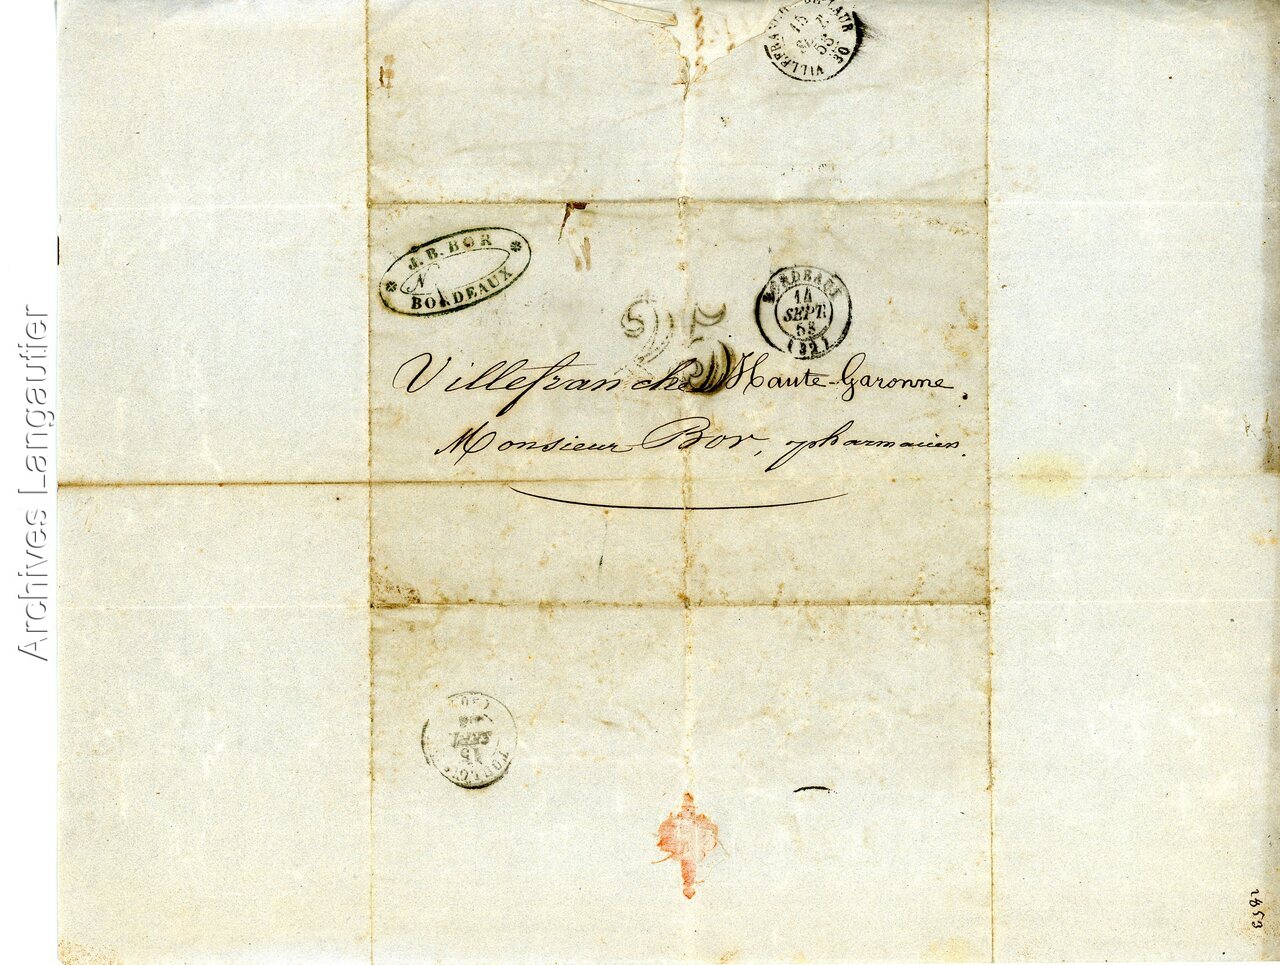 VILLEFRANCHE-DE-LAUR
15
SEPT.
53
30
J. B. BOR
N
BORDEAUX
BORDEAUX
14
SEPT.
53
(32)
25
Villefranche Haute-Garonne.
Monsieur Bor, pharmacien.
TOULOUSE
15
SEPT.
53
1853
Archives Langautier